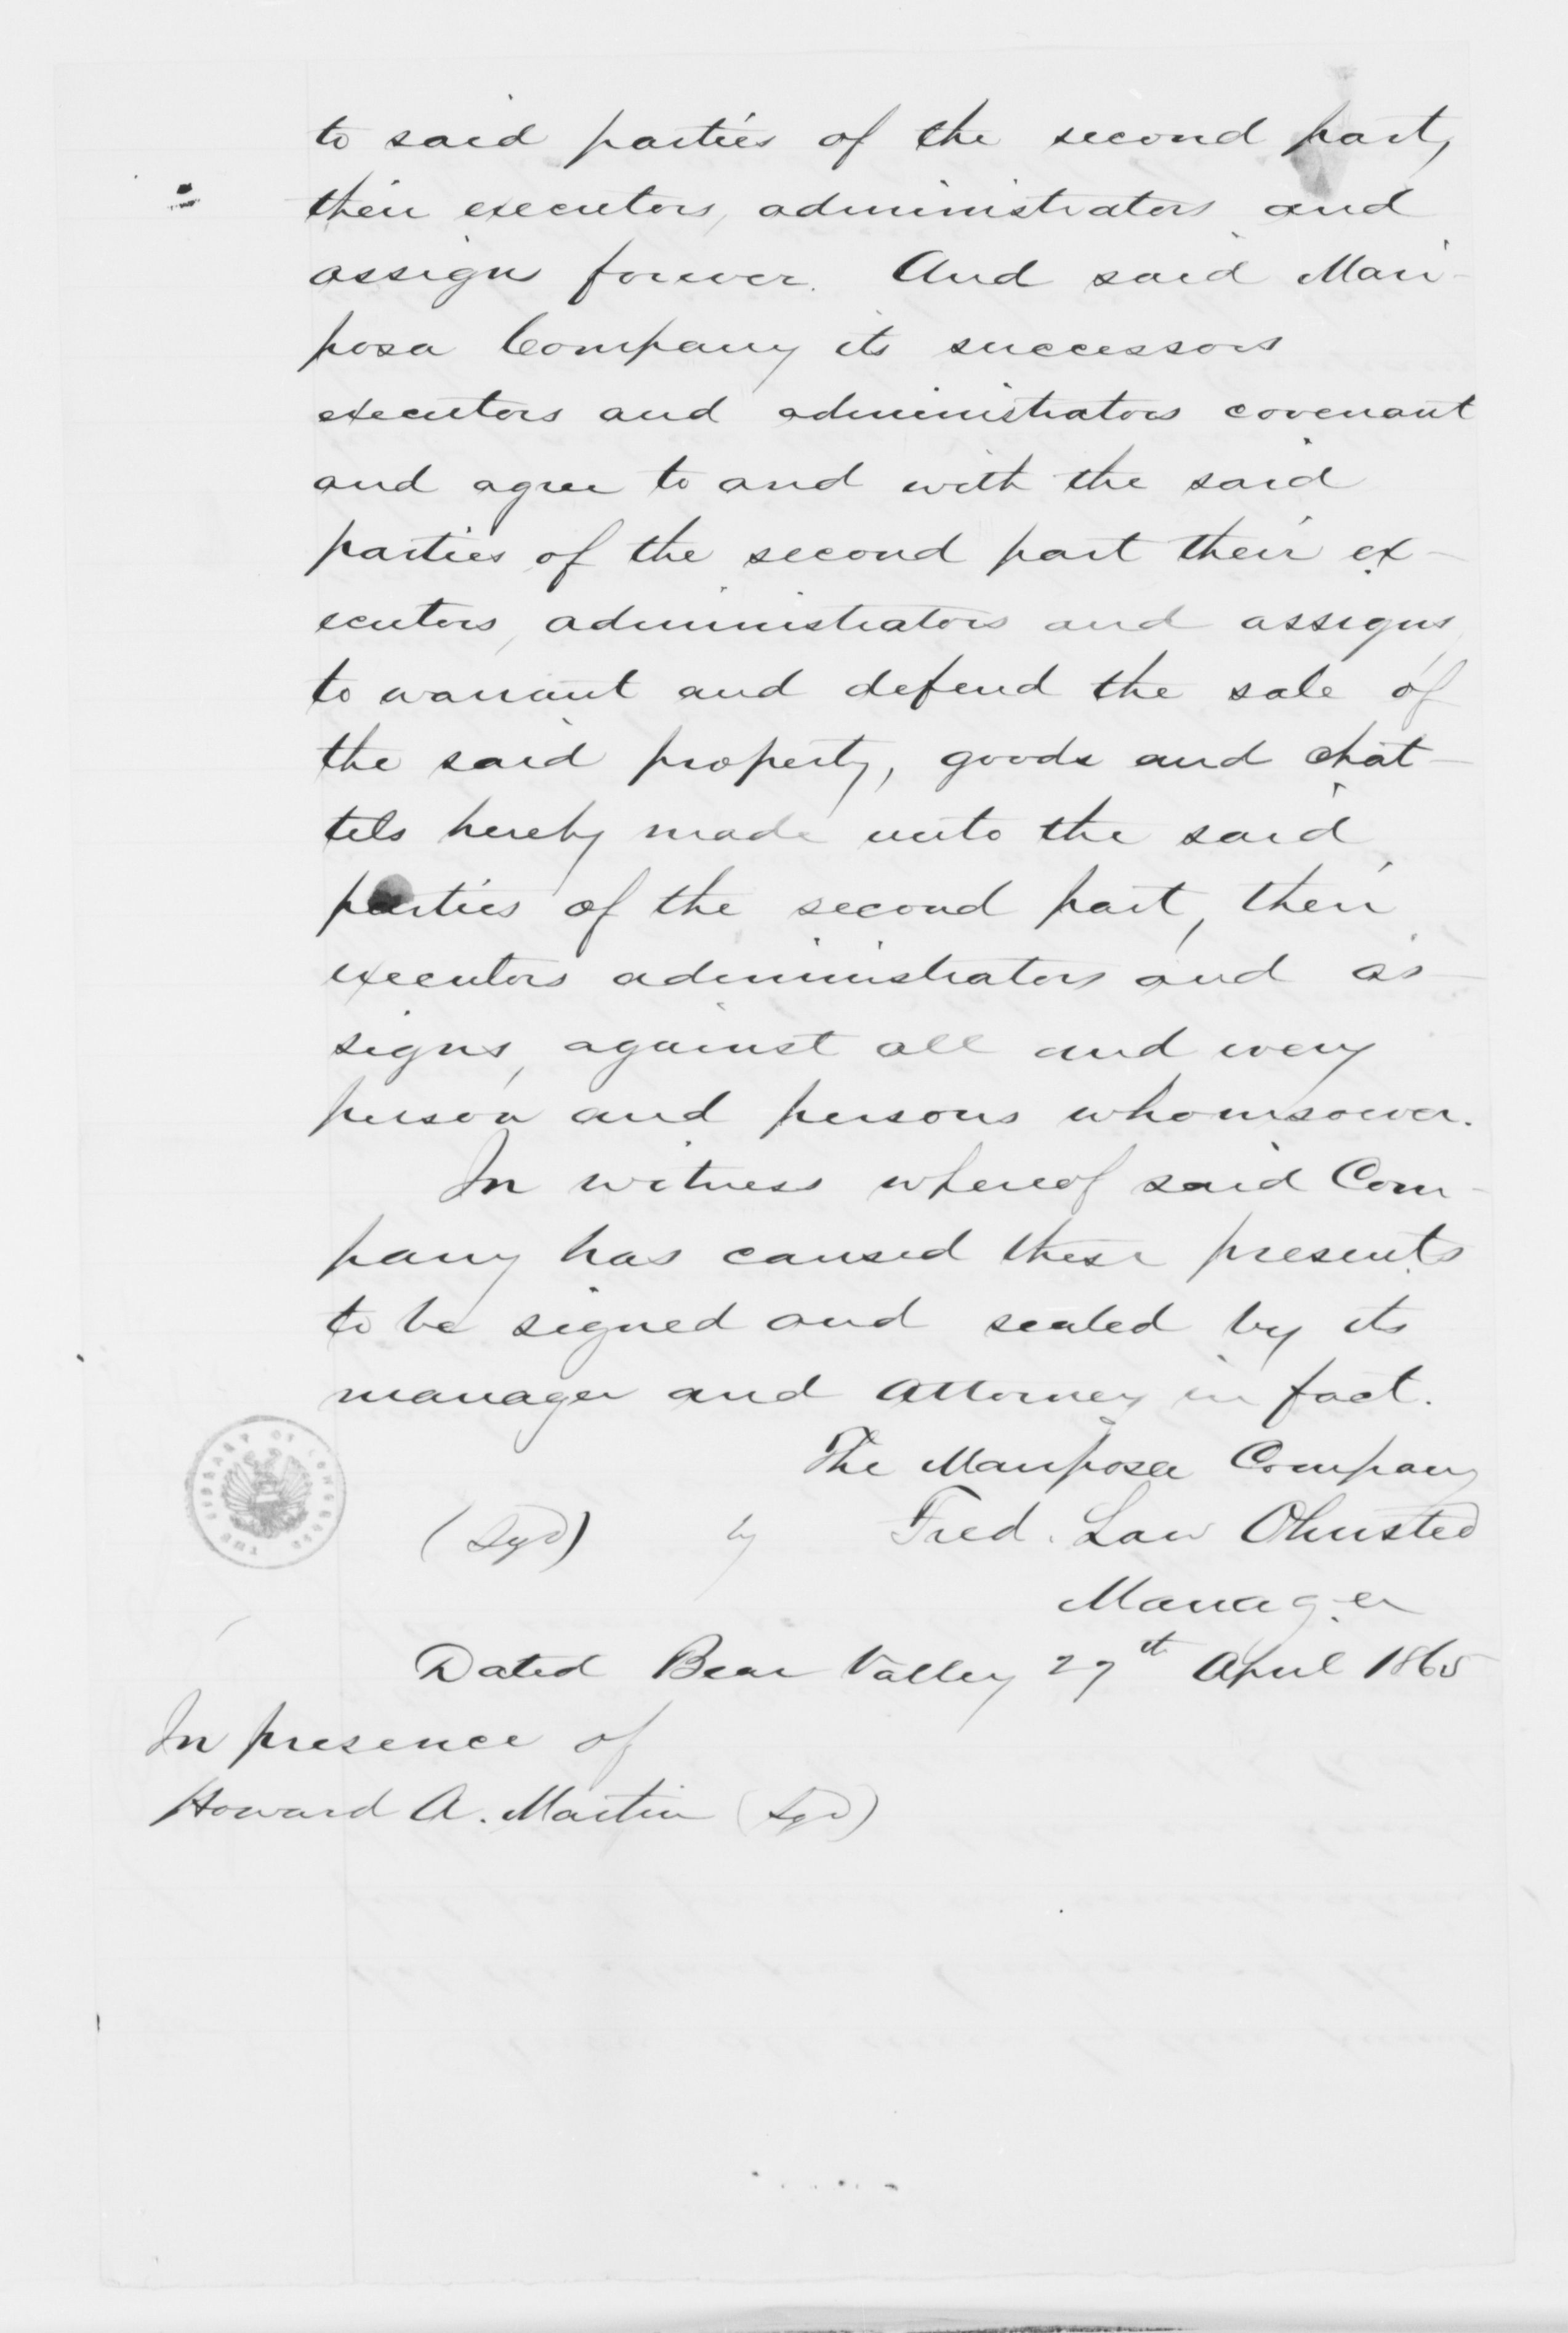 to said parties of the second part,
their executors, administrators and
assigns forever. And said Mari-
posa Company its successors
executors and administrators covenant
and agree to and with the said
parties of the second part their ex-
ecutors, administrators and assigns,
to warrant and defend the sale of
the said property, goods and chat-
tels hereby made unto the said
parties of the second part, their
executors administrators and as-
signs, against all and every
person and persons whomsoever.
In witness whereof said Com-
pany has caused these presents
to be signed and sealed by its
manager and Attorney in fact.
The Mariposa Company
(Sgd) by Fred. Law Olmsted
Manager
Dated Bear Valley 29th April 1865
In presence of
Howard A. Martin (Sgd)
THE LIBRARY OF CONGRESS